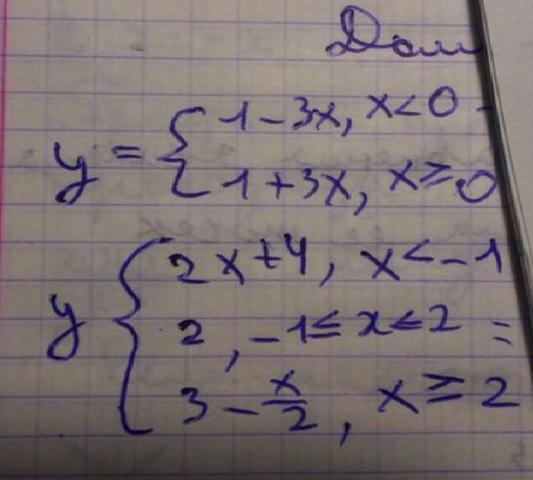 y = { 1 - 3x, x < 0
1 + 3x, x ≥ 0
y { 2x + 4, x < -1
2, -1 ≤ x ≤ 2
3 - x/2, x ≥ 2